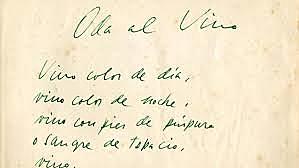 Oda al Vino
Vino color de día,
vino color de noche,
vino con pies de púrpura
o sangre de topacio,
vino,